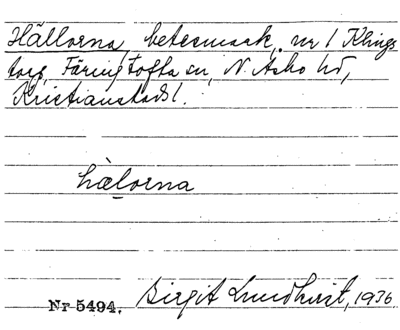 Hällorna, betesmark, nr 1 Klings
torp, Färingtofta sn, N. Asbo hd,
Kristianstads l.
hæ̀lorna
Nr 5494. Birgit Lundkvist, 1936